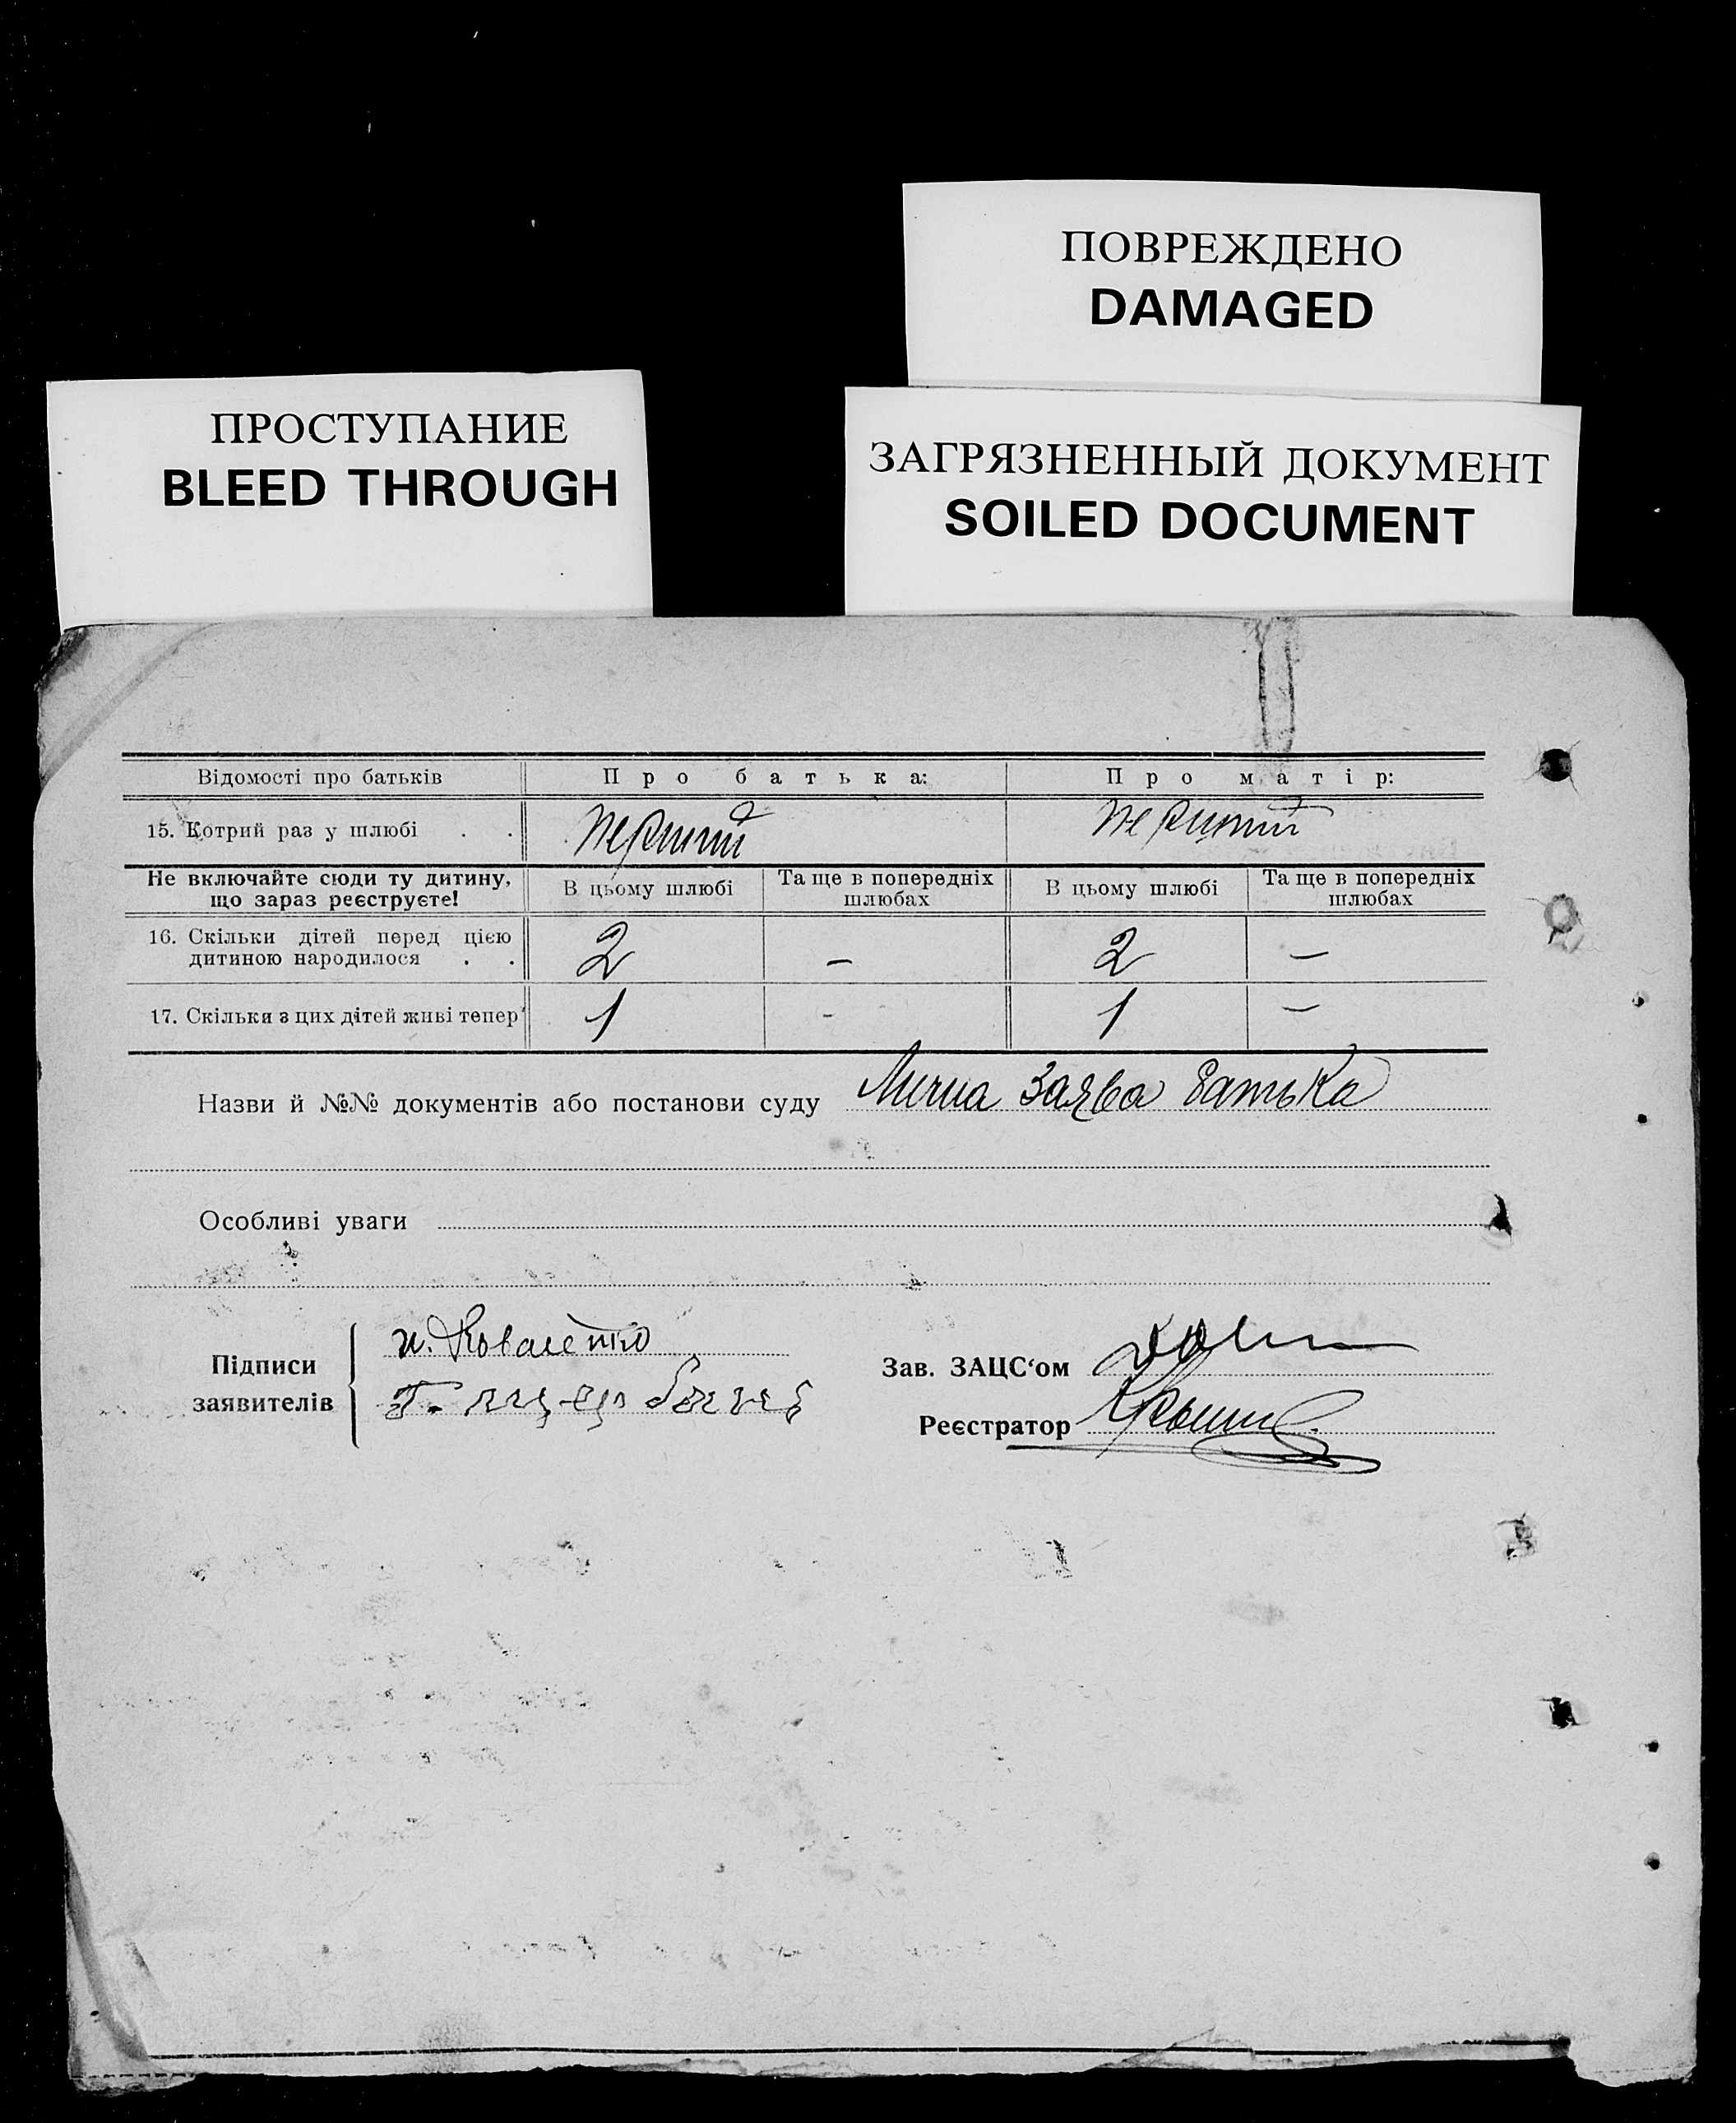 ПОВРЕЖДЕНО
DAMAGED
ПРОСТУПАНИЕ
BLEED THROUGH
ЗАГРЯЗНЕННЫЙ ДОКУМЕНТ
SOILED DOCUMENT
Відомості про батьків Про батька: Про матір:
15. Котрий раз у шлюбі . . перший перший
Не включайте сюди ту дитину, що зараз реєструєте! В цьому шлюбі Та ще в попередніх шлюбах В цьому шлюбі Та ще в попередніх шлюбах
16. Скільки дітей перед цією
дитиною народилося . . 2 – 2 –
17. Скільки з цих дітей живі тепер 1 - 1 –
Назви й №№ документів або постанови суду Лична заява батька
Особливі уваги
Підписи
заявителів
и. Коваленко
Зав. ЗАЦС‘ом
Реєстратор